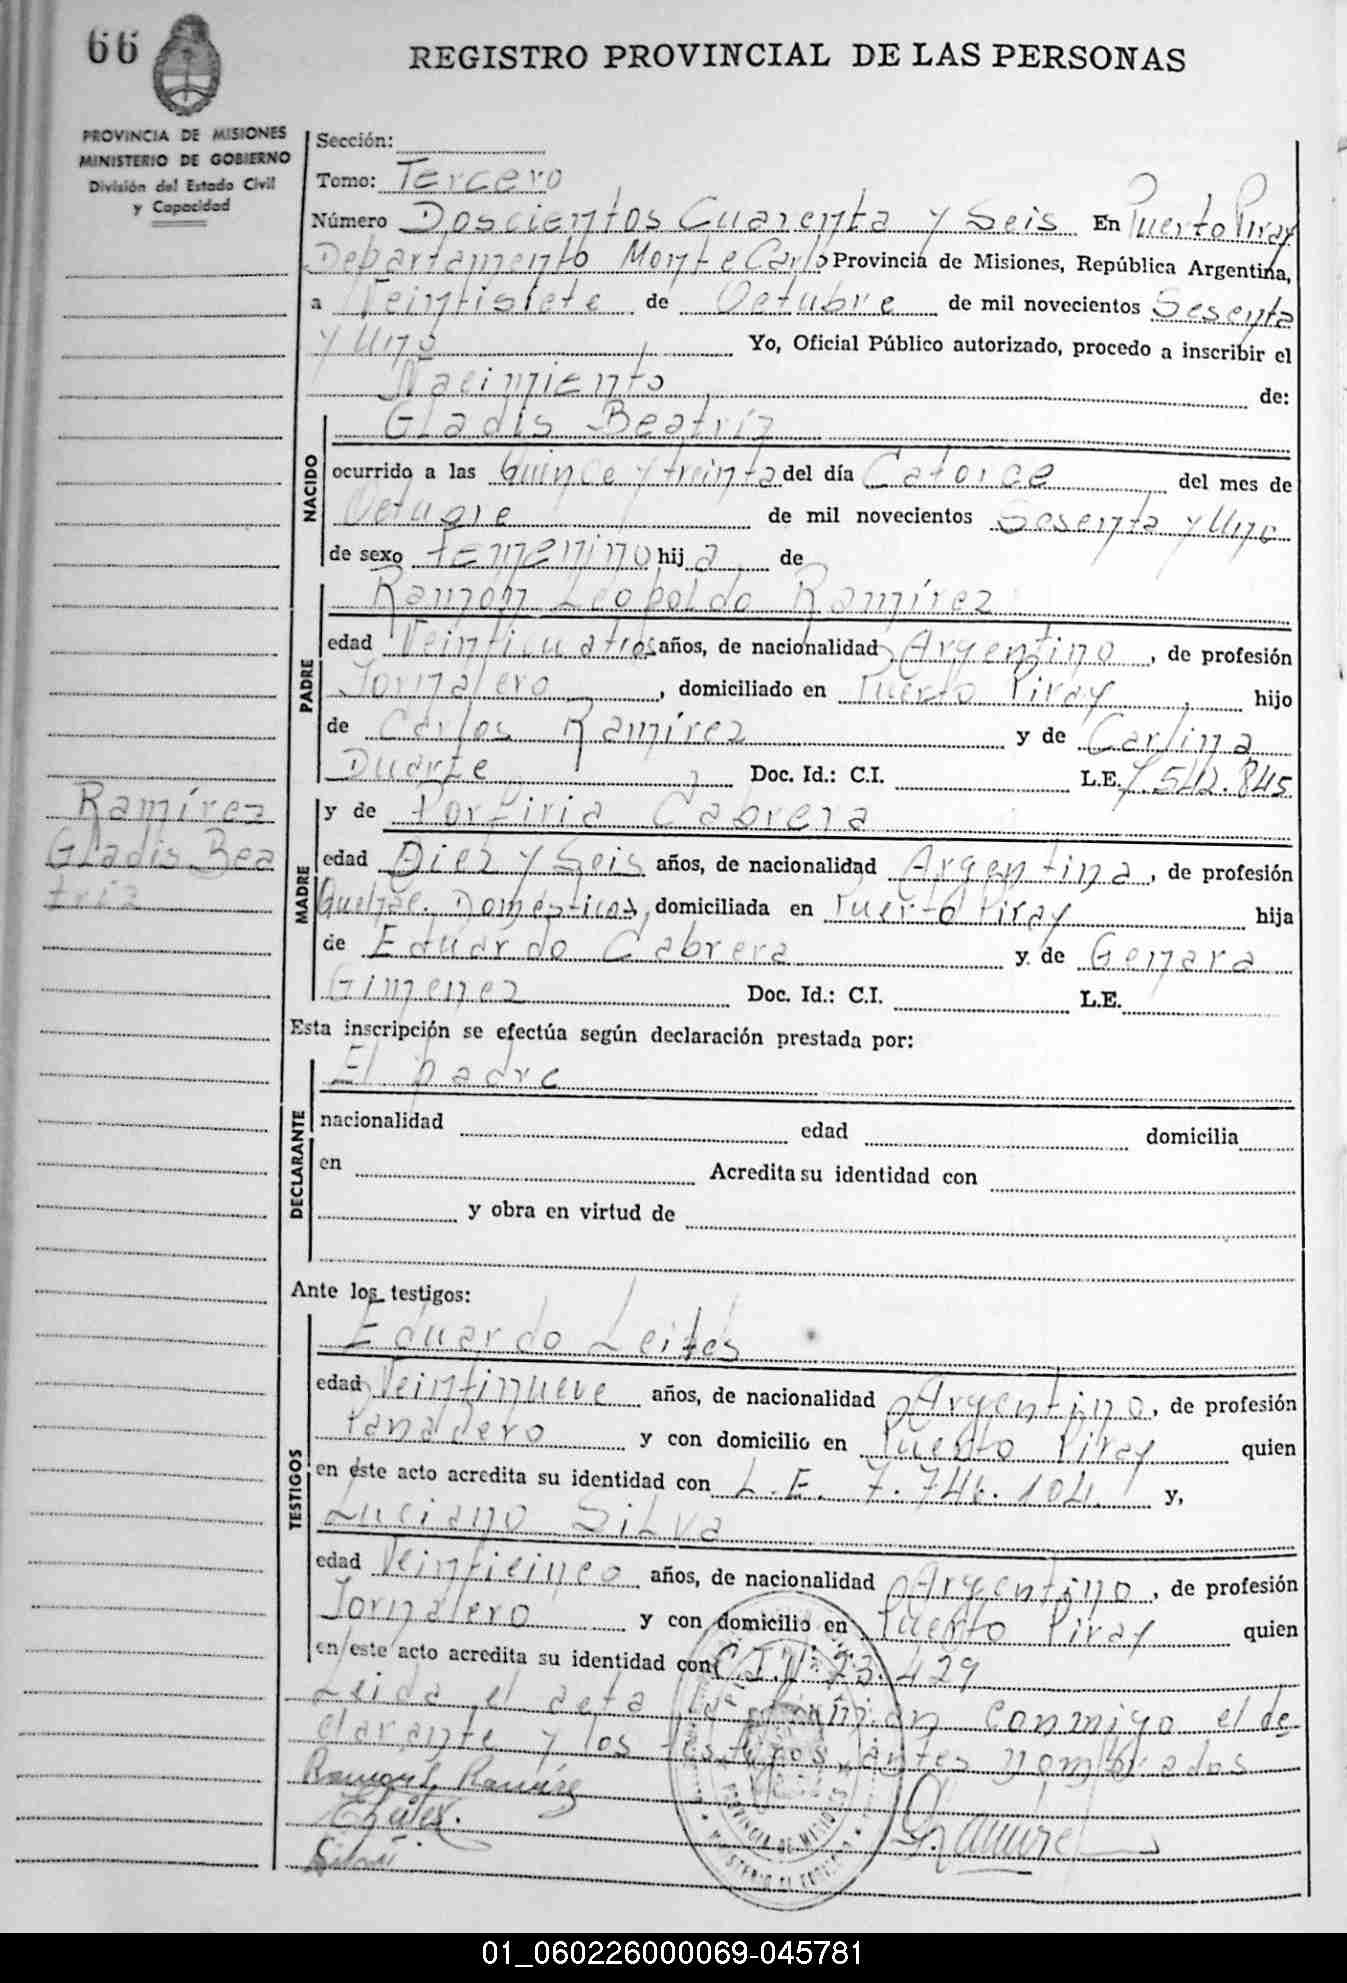 66
REGISTRO PROVINCIAL DE LAS PERSONAS
PROVINCIA DE MISIONES
MINISTERIO DE GOBIERNO
División del Estado Civil
y Capacidad
Sección:
Tomo: Tercero
Número Doscientos Cuarenta y Seis En Puerto Piray
Departamento Monte Carlo Provincia de Misiones, República Argentina,
a Veintisiete de Octubre de mil novecientos Sesenta
y Uno Yo, Oficial Público autorizado, procedo a inscribir el
Nacimiento de:
NACIDO
Gladis Beatriz
ocurrido a las Quince y treinta del día Catorce del mes de
Octubre de mil novecientos Sesenta y Uno
de sexo femenino hija de
PADRE
Ramon Leopoldo Ramírez
edad Veinticuatro años, de nacionalidad Argentino, de profesión
Jornalero, domiciliado en Puerto Piray hijo
de Carlos Ramírez y de Carlina
Duarte Doc. Id.: C.I. L.E. 7.542.845
Ramírez
Gladis Bea
triz
MADRE
y de Porfiria Cabrera
edad Diez y Seis años, de nacionalidad Argentina, de profesión
Quehac. Domésticos, domiciliada en Puerto Piray hija
de Eduardo Cabrera y de Genara
Gimenez Doc. Id.: C.I. L.E.
Esta inscripción se efectúa según declaración prestada por:
DECLARANTE
El padre
nacionalidad edad domicilia
en Acredita su identidad con
y obra en virtud de
Ante los testigos:
TESTIGOS
Eduardo Leites
edad Veintinueve años, de nacionalidad Argentino, de profesión
Panadero y con domicilio en Puerto Piray quien
en este acto acredita su identidad con L.E. 7.746.104 y,
Luciano Silva
edad Veinticinco años, de nacionalidad Argentino, de profesión
Jornalero y con domicilio en Puerto Piray quien
en este acto acredita su identidad con C.I.Nº 73.429
Leida el acta la firman conmigo el de
clarante y los testigos antes nombrados
Ramon L Ramírez
PROVINCIA DE MISIONES
MINISTERIO DE GOBIERNO
01_060226000069-045781